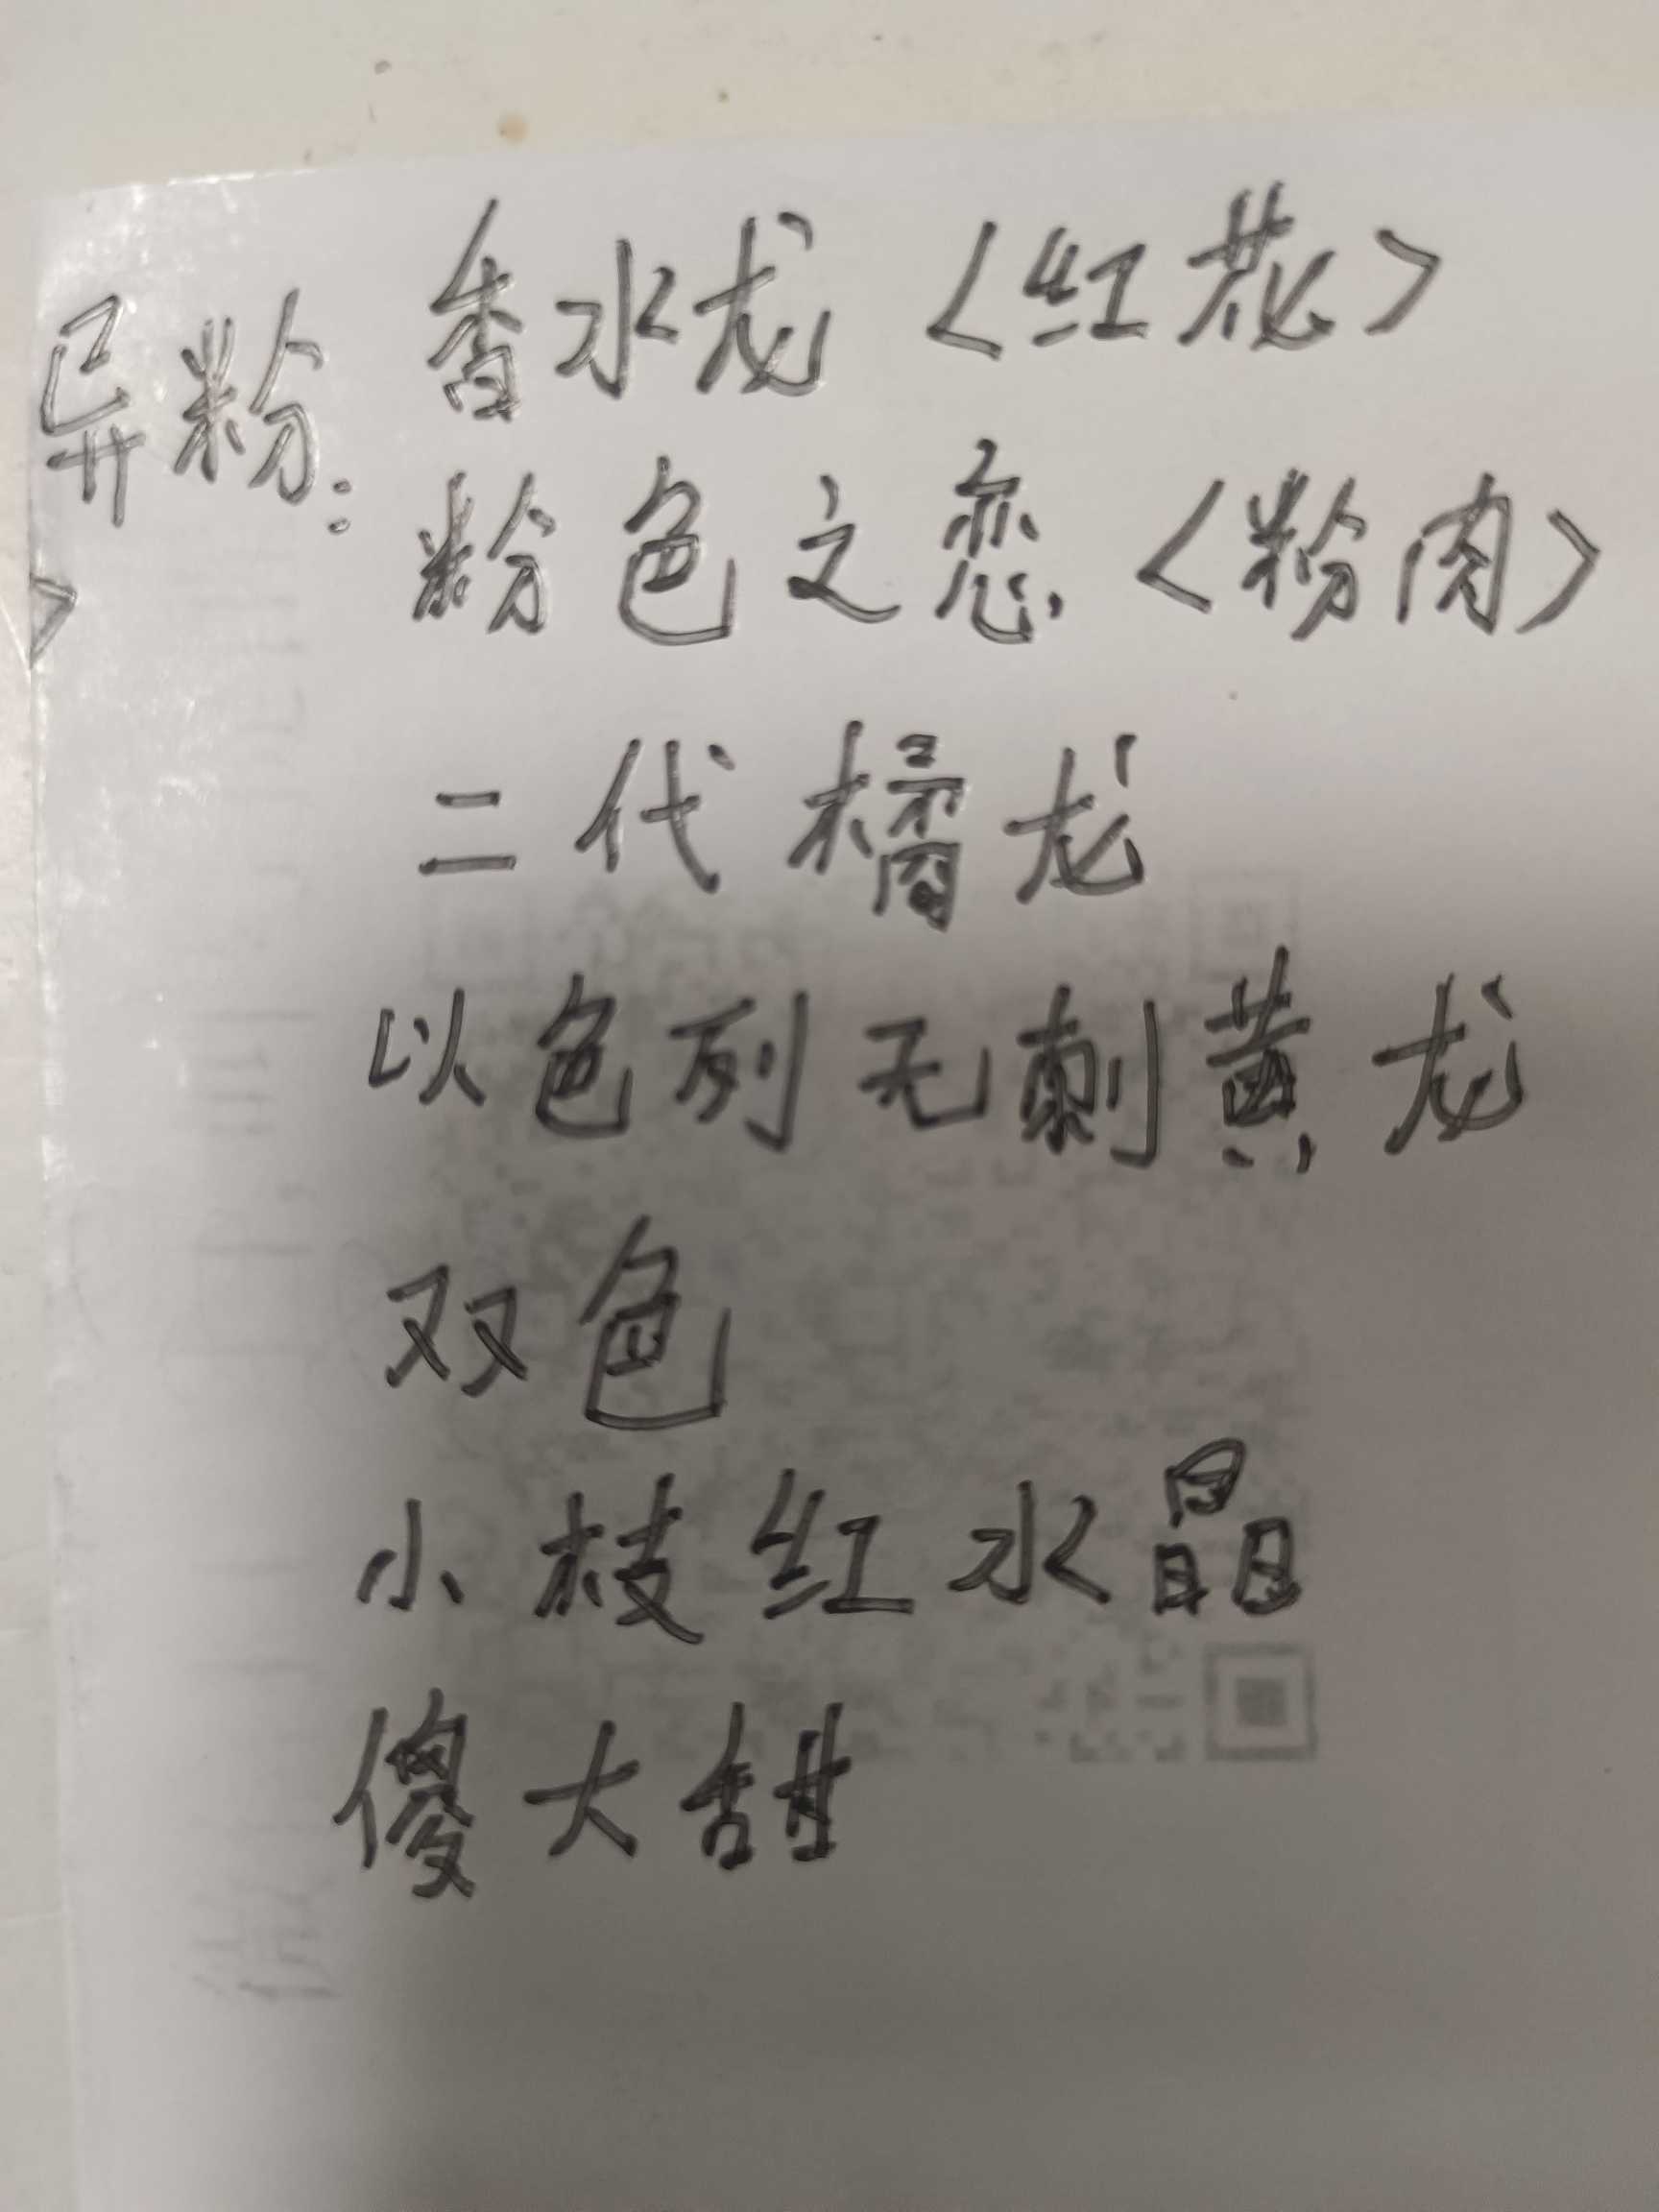 异粉: 香水龙〈红花〉
粉色之恋〈粉肉〉
二代橘龙
以色列无刺黄龙
双色
小枝红水晶
傻大甜